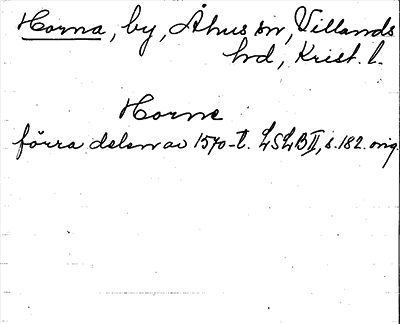 Horna, by, Åhus sn, Villands
hd, Krist. l.
Horne
förra delen av 1570-t. LSLB II, s. 182. orig.